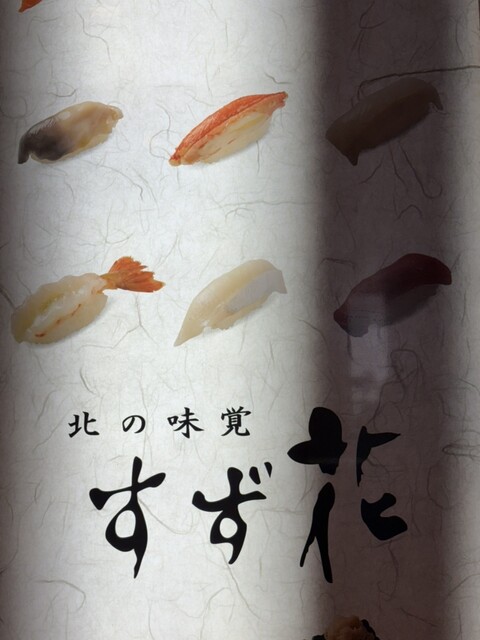 北の味覚
すず花